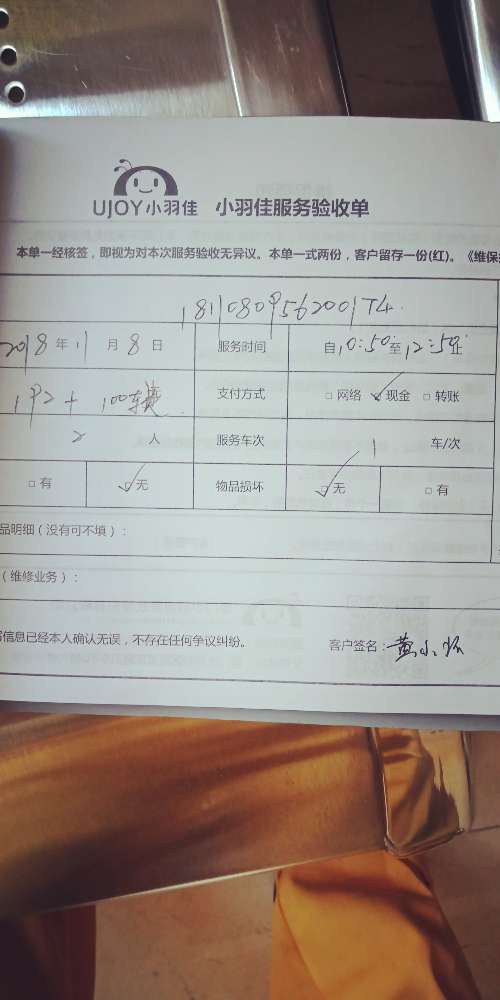 UJOY小羽佳 小羽佳服务验收单
本单一经核签，即视为对本次服务验收无异议。本单一式两份，客户留存一份(红)。《维保
18110809562001T4
2018年11月8日 服务时间 自10:50至12:50止
192+100车费 支付方式 □网络 ☑现金 □转账
2人 服务车次 1车/次
□有 ☑无 物品损坏 ☑无 □有
品明细（没有可不填）：
（维修业务）：
信息已经本人确认无误，不存在任何争议纠纷。 客户签名：黄小怀